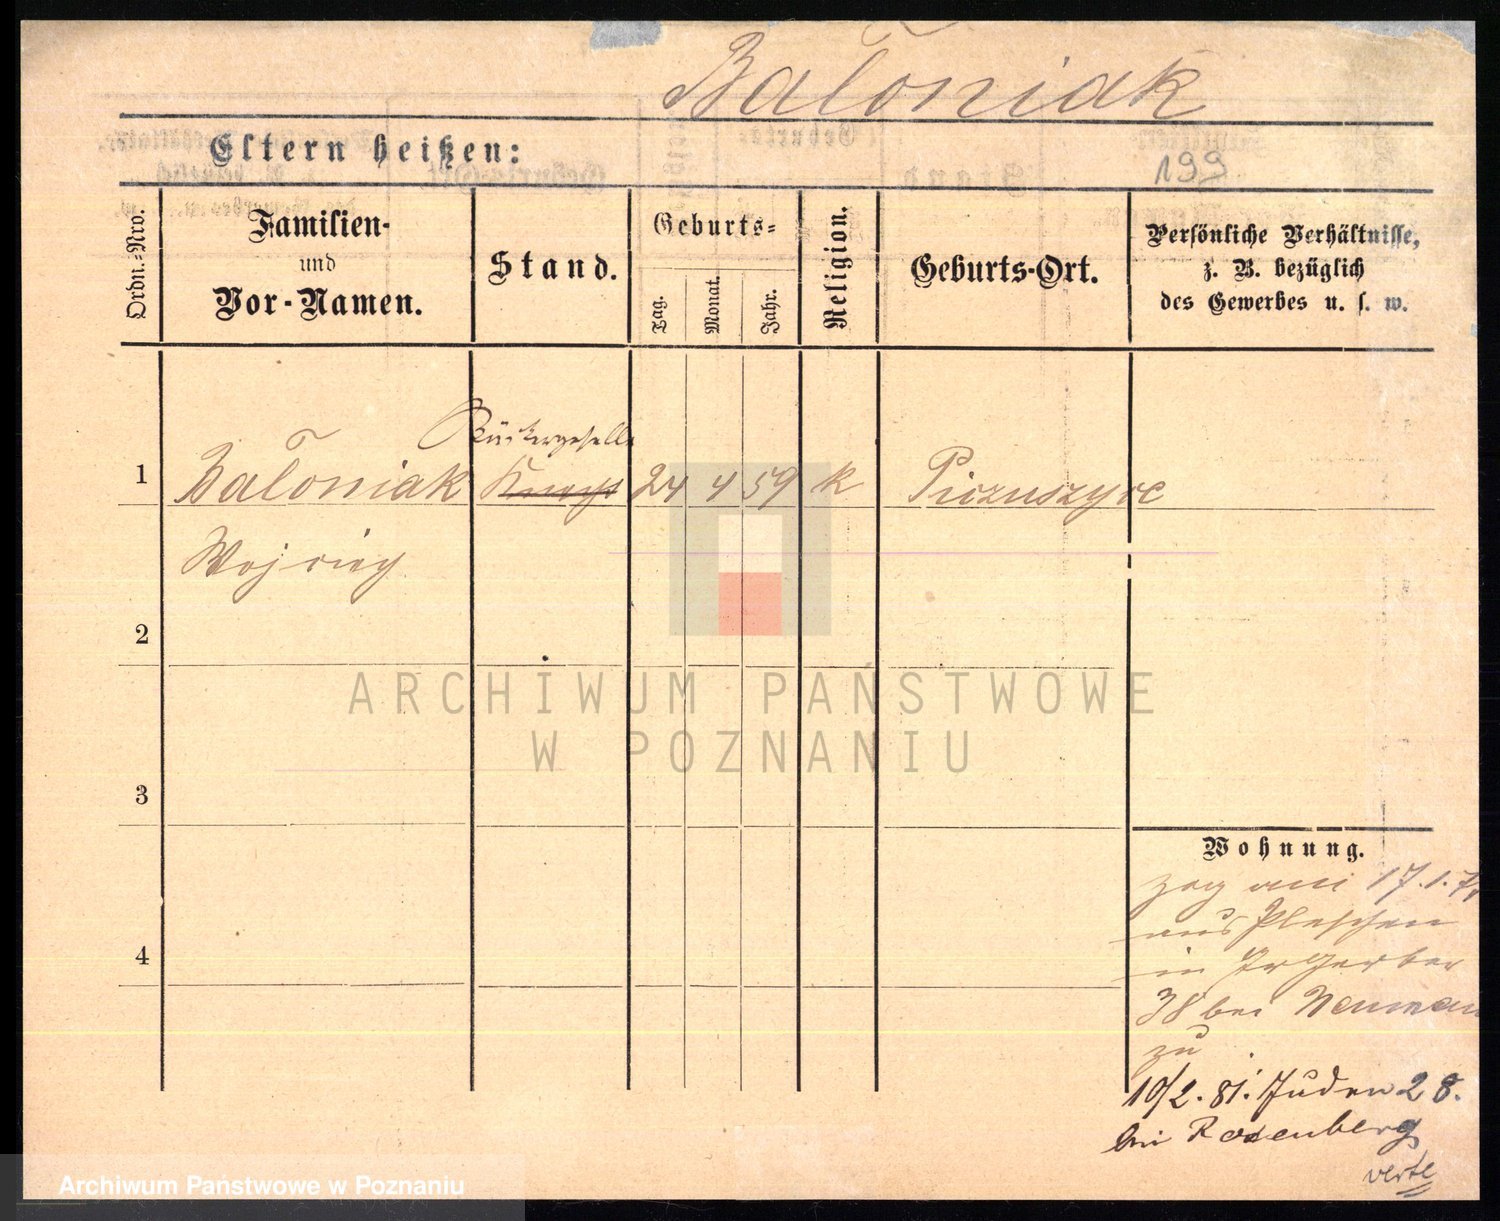 Bałoniak
Eltern heißen:
199
Ordn.-Nro.
Familien-
und
Vor-Namen.
Stand.
Geburts-
Tag.
Monat.
Jahr.
Religion.
Geburts-Ort.
Persönliche Verhältnisse,
z. B. bezüglich
des Gewerbes u. s. w.
Bäckergeselle
1 Bałoniak 24 4 59 k
2
3
4
Wohnung.
zog am 17.1.
aus Pleschen
in Gr Gerber
38 bei Neuman
zu
10/2. 81. Juden 28.
bei Rosenberg
verte
ARCHIWUM PAŃSTWOWE
W POZNANIU
Archiwum Państwowe w Poznaniu